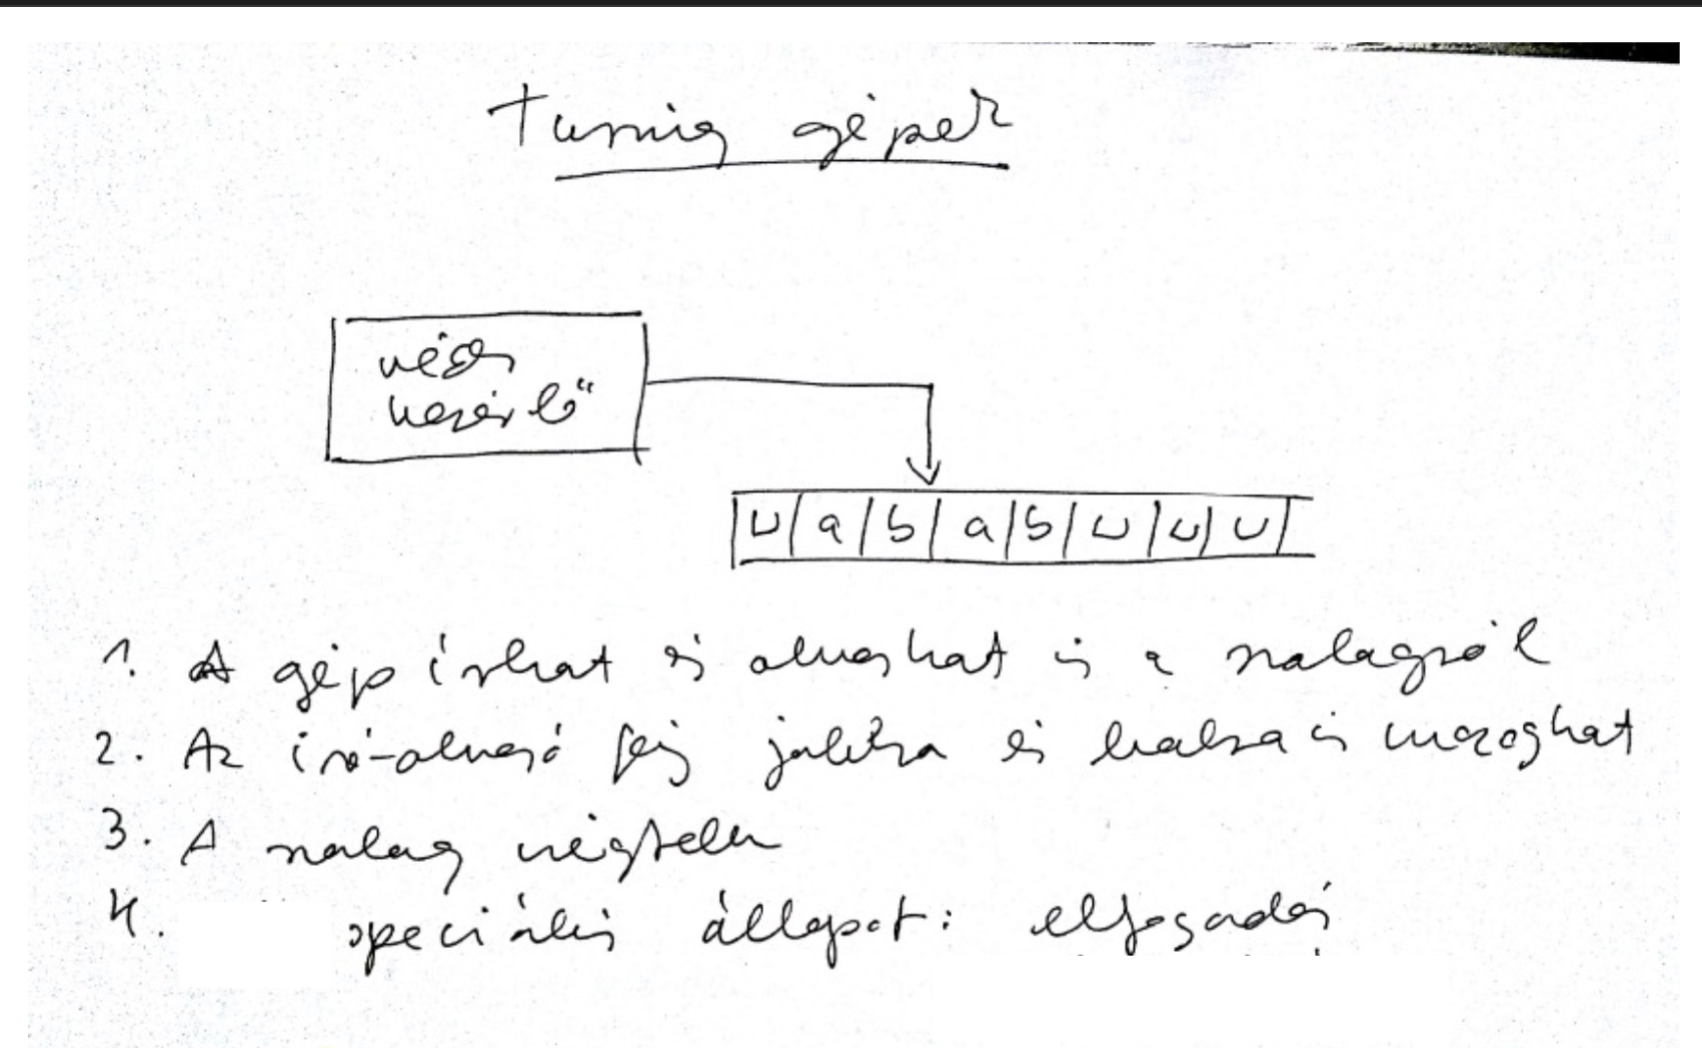 Turing gépek
véges
vezérlő"
⊔ a b a b ⊔ ⊔ ⊔
1. A gép írhat és olvashat is a szalagról
2. Az író-olvasó fej jobbra és balra is mozoghat
3. A szalag végtelen
4. speciális állapot: elfogadás